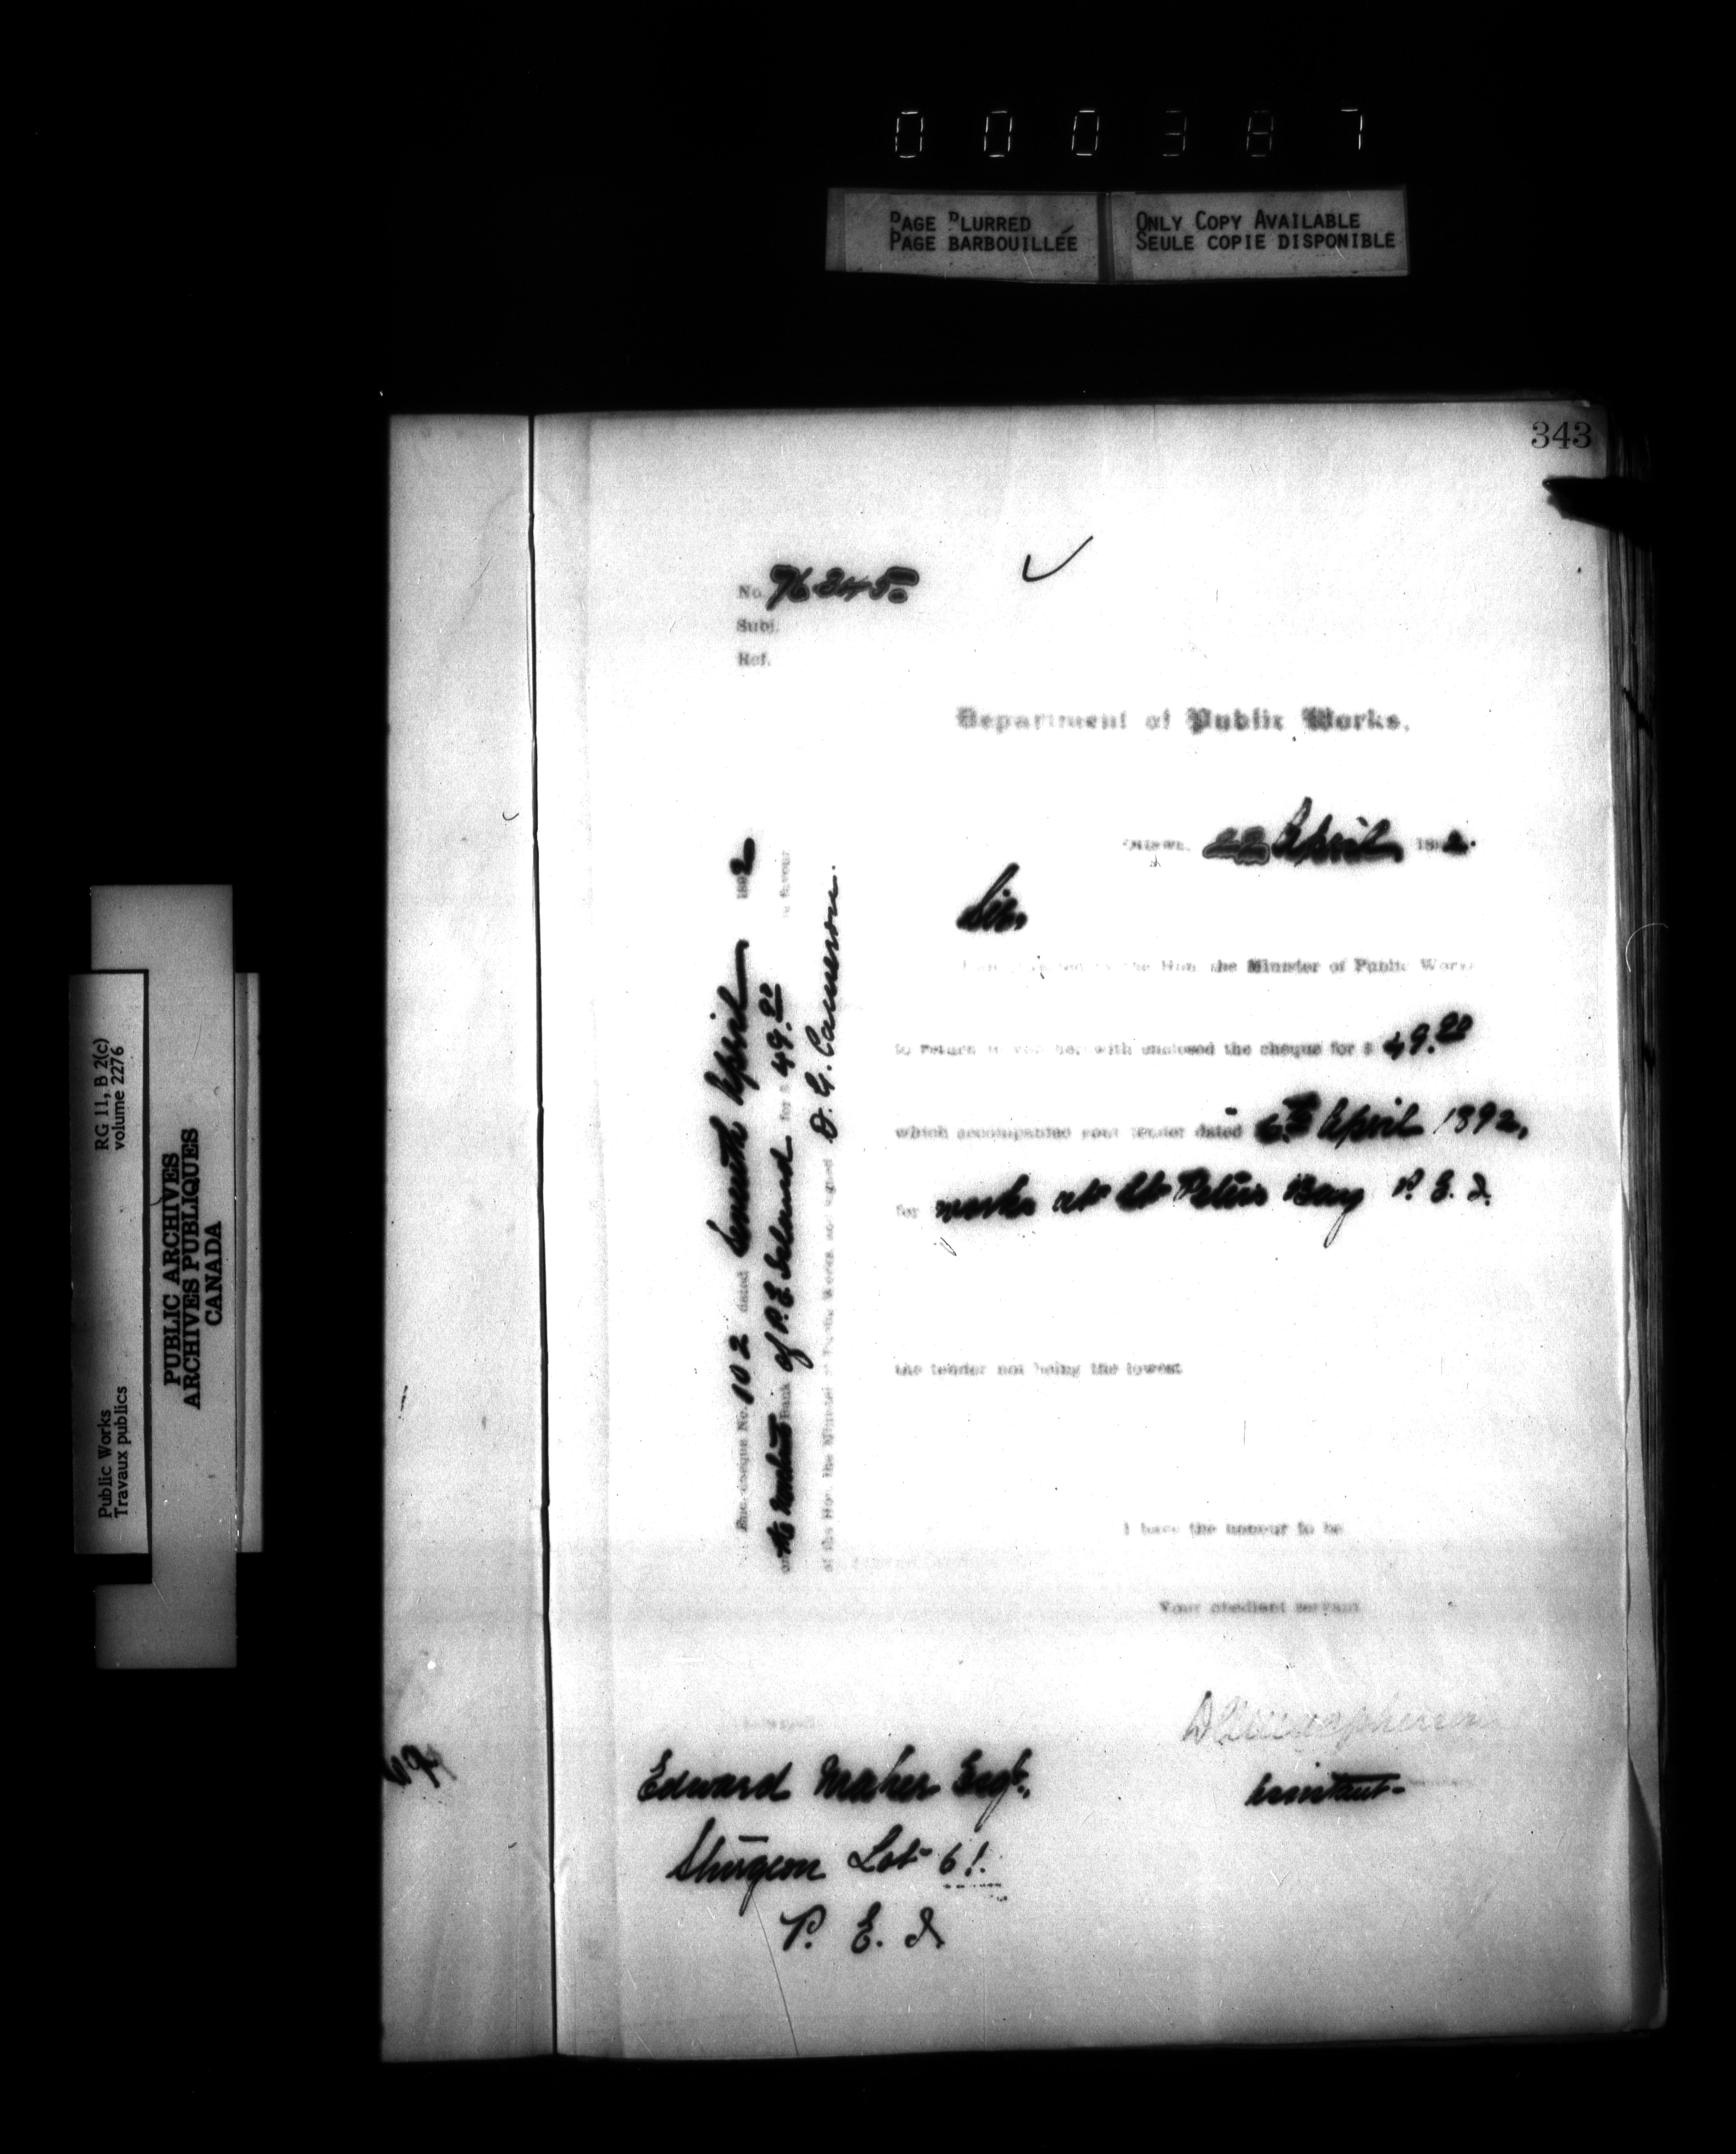 000387
PAGE BLURRED
PAGE BARBOUILLÉE
ONLY COPY AVAILABLE
SEULE COPIE DISPONIBLE
343
No. 76245
Subj.
Ref.
Department of Public Works.
Ottawa, 22 April 1892.
Sir,
the Hon. the Minister of Public Works
to return to you herewith enclosed the cheque for $ 49.20
which accompanied your tender dated 6th April 1892,
for works at St Peters Bay P. E. I.
the tender not being the lowest
I have the honour to be
Your obedient servant
Assistant
Edward Maher Esqr.,
Sturgeon Lot 61.
P. E. I.
Enc. cheque No. 102 dated Seventh April 1892
on the Merchants Bank of P. E. Island for $ 49.20 in favour
of the Hon. the Minister of Public Works and signed D. G. Cameron.
RG 11, B 2(c)
volume 2276
PUBLIC ARCHIVES
ARCHIVES PUBLIQUES
CANADA
Public Works
Travaux publics